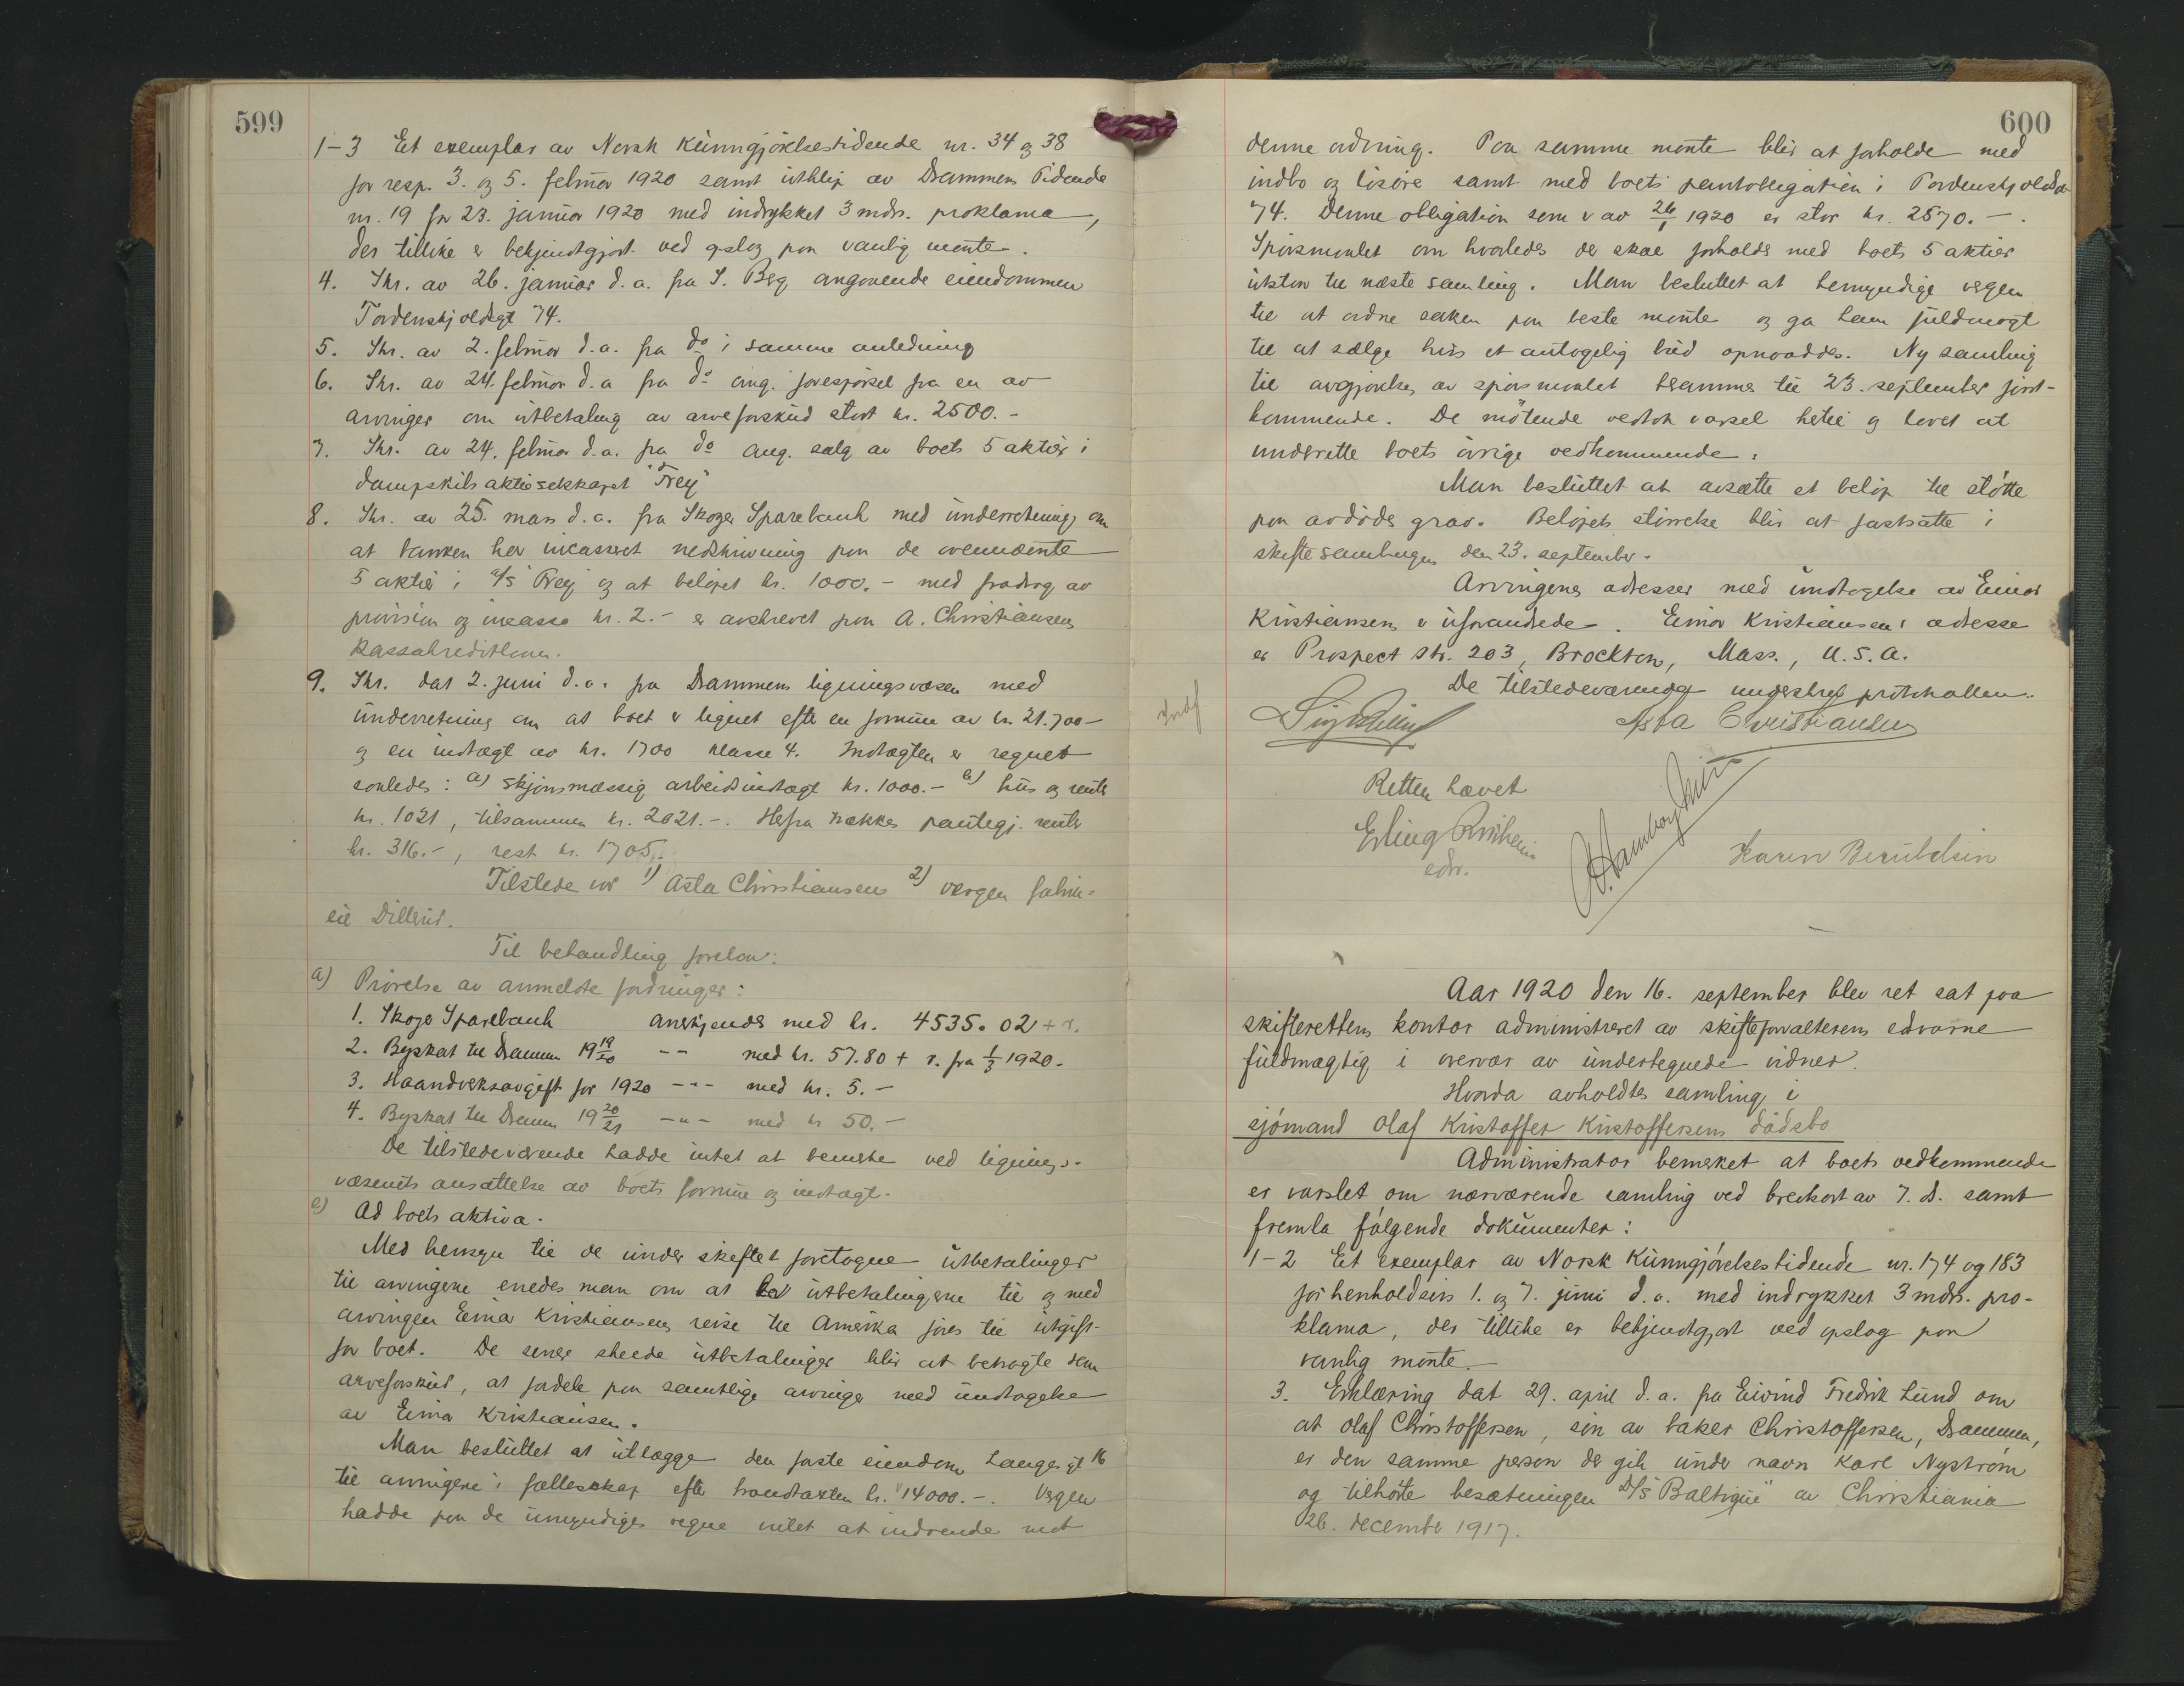 599
1-3 Et exemplar av Norsk Kunngjörelsestidende nr. 34 og 38
for resp. 3. og 5. februar 1920 samt utklip av Drammens Tidende
nr. 19 for 23. januar 1920 med indrykket 3 mdrs. proklama,
der tillike er bekjendtgjort ved opslag paa vanlig maate.
4. Skr. av 26. januar d.a. fra S. Berg angaaende eiendommen
Tordenskjoldsgt 74.
5. Skr. av 2. februar d.a. fra do i samme anledning
6. Skr. av 24. februar d.a fra do ang. forespörsel fra en av
arvinger om utbetaling av arveforskud stort kr. 2500.-
7. Skr. av 24. februar d.a. fra do ang. salg av boets 5 aktier i
dampskibsaktieselskapet "Frey"
8. Skr. av 25. mars d.a. fra Skoger Sparebank med underretning om
at banken har incasseret nedskrivning paa de ovennævnte
5 aktier i a/s Frey og at belöpet kr. 1000.- med fradrag av
provision og incasso kr. 2.- er avskrevet paa A. Christiansens
kassakreditlaan.
9. Skr. dat 2. juni d.a. fra Drammens ligningsvæsen med
underretning om at boet er lignet efter en formue av kr. 21.700-
og en indtægt av kr. 1700 klasse 4. Indtægten er regnet
saaledes: a) skjönsmæssig arbeidsindtægt kr. 1000.- b) hus og rente
kr. 1021, tilsammen kr. 2021.-. Herfra trækkes pantegj. rente
kr. 316.-, rest kr. 1705.-
Tilstede var 1) Asta Christiansen 2) vergen
Dillerud.
Til behandling forelaa:
a) Prövelse av anmeldte fordringer:
1. Skoger Sparebank anerkjendes med kr. 4535.02 + r.
2. Byskat til Drammen 19 19/20 -"- med kr. 57.80 + r. fra 1/3 1920.
3. Haandverksavgift for 1920 -"- med kr. 5.-
4. Byskat til Drammen 19 20/21 -"- med kr 50.-
De tilstedeværende hadde intet at bemerke ved lignings-
væsenets ansættelse av boets formue og indtægt.
Ad boets aktiva.
Med hensyn til de under skiftet foretagne utbetalinger
til arvingene enedes man om at utbetalingene til og med
arvingen Einar Kristiansens reise til Amerika föres til utgift
for boet. De senere skeede utbetalinger blir at betragte som
arveforskud, at fordele paa samtlige arvinger med undtagelse
av Einar Kristiansen.
Man besluttet at utlægge den faste eiendom Langesgt 16
til arvingene i fællesskap efter branntaksten kr. 14000.-. Vergen
hadde paa de umyndiges vegne intet at indvende mot
Indf
600
denne ordning. Paa samme maate blir at forholde med
indbo og lösöre samt med boets pantobligation i Tordenskjoldsgt
74. Denne obligation som er av 26/1 1920 er stor kr. 2570.-.
Spörsmaalet om hvorledes der skal forholdes med boets 5 aktier
utstaar til næste samling. Man besluttet at bemyndige vergen
til at ordne saken paa beste maate og ga ham fuldmagt
til at sælge hvis et antagelig bud opnaaddes. Ny samling
til avgjörelse av spörsmaalet berammes til 23. september först-
kommende. De mötende vedtok varsel hertil og lovet at
underrette boets övrige vedkommende.
Man besluttet at avsætte et belöp til stötte
paa avdödes grav. Belöpets störrelse blir at fastsætte i
skiftesamlingen den 23. september.
Arvingenes adresser med undtagelse av Einar
Kristiansens er uforandrede. Einar Kristiansens adresse
er Prospect str. 203, Brockton, Mass., U.S.A.
De tilstedeværende underskrev protokollen.
Asta Christiansen
Retten hævet
Erling
edsv.
Karen Berntdsen
Aar 1920 den 16. september blev ret sat paa
skifterettens kontor administreret av skifteforvalterens edsvorne
fuldmægtig i overvær av undertegnede vidner.
Hvorda avholdtes samling i
sjömand Olaf Kristoffer Kristoffersens dödsbo
Administrator bemerket at boets vedkommende
er varslet om nærværende samling ved brevkort av 7. ds. samt
fremla fölgende dokumenter:
1-2 Et exemplar av Norsk Kunngjörelsestidende nr. 174 og 183
for henholdsvis 1. og 7. juni d.a. med indrykket 3 mdrs. pro-
klama, der tillike er bekjendtgjort ved opslag paa
vanlig maate.-
3. Erklæring dat 29. april d.a. fra Eivind Fredrik Lund om
at Olaf Christoffersen, sön av baker Christoffersen, Drammen,
er den samme person der gik under navn Karl Nyström
og tilhörte besætningen D/S "Baltique" av Christiania
26. december 1917.